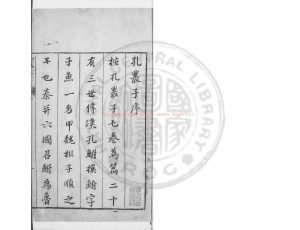 孔叢子序
按孔叢子七卷為篇二十
有三世傳漢孔鮒撰鮒字
子魚一名甲魏相子順之
子也秦并六國召鮒為魯
CENTRAL LIBRARY